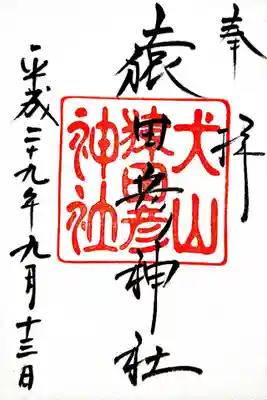 奉拝
猿田彦神社
犬山
猿田彦
神社
平成二十九年九月十三日